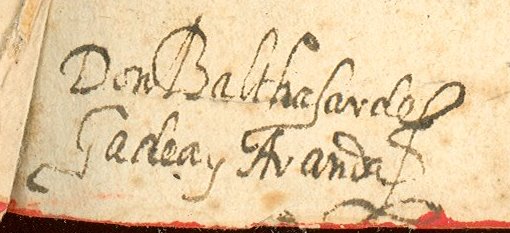 Don Balthasar de
Gadea y Aranda